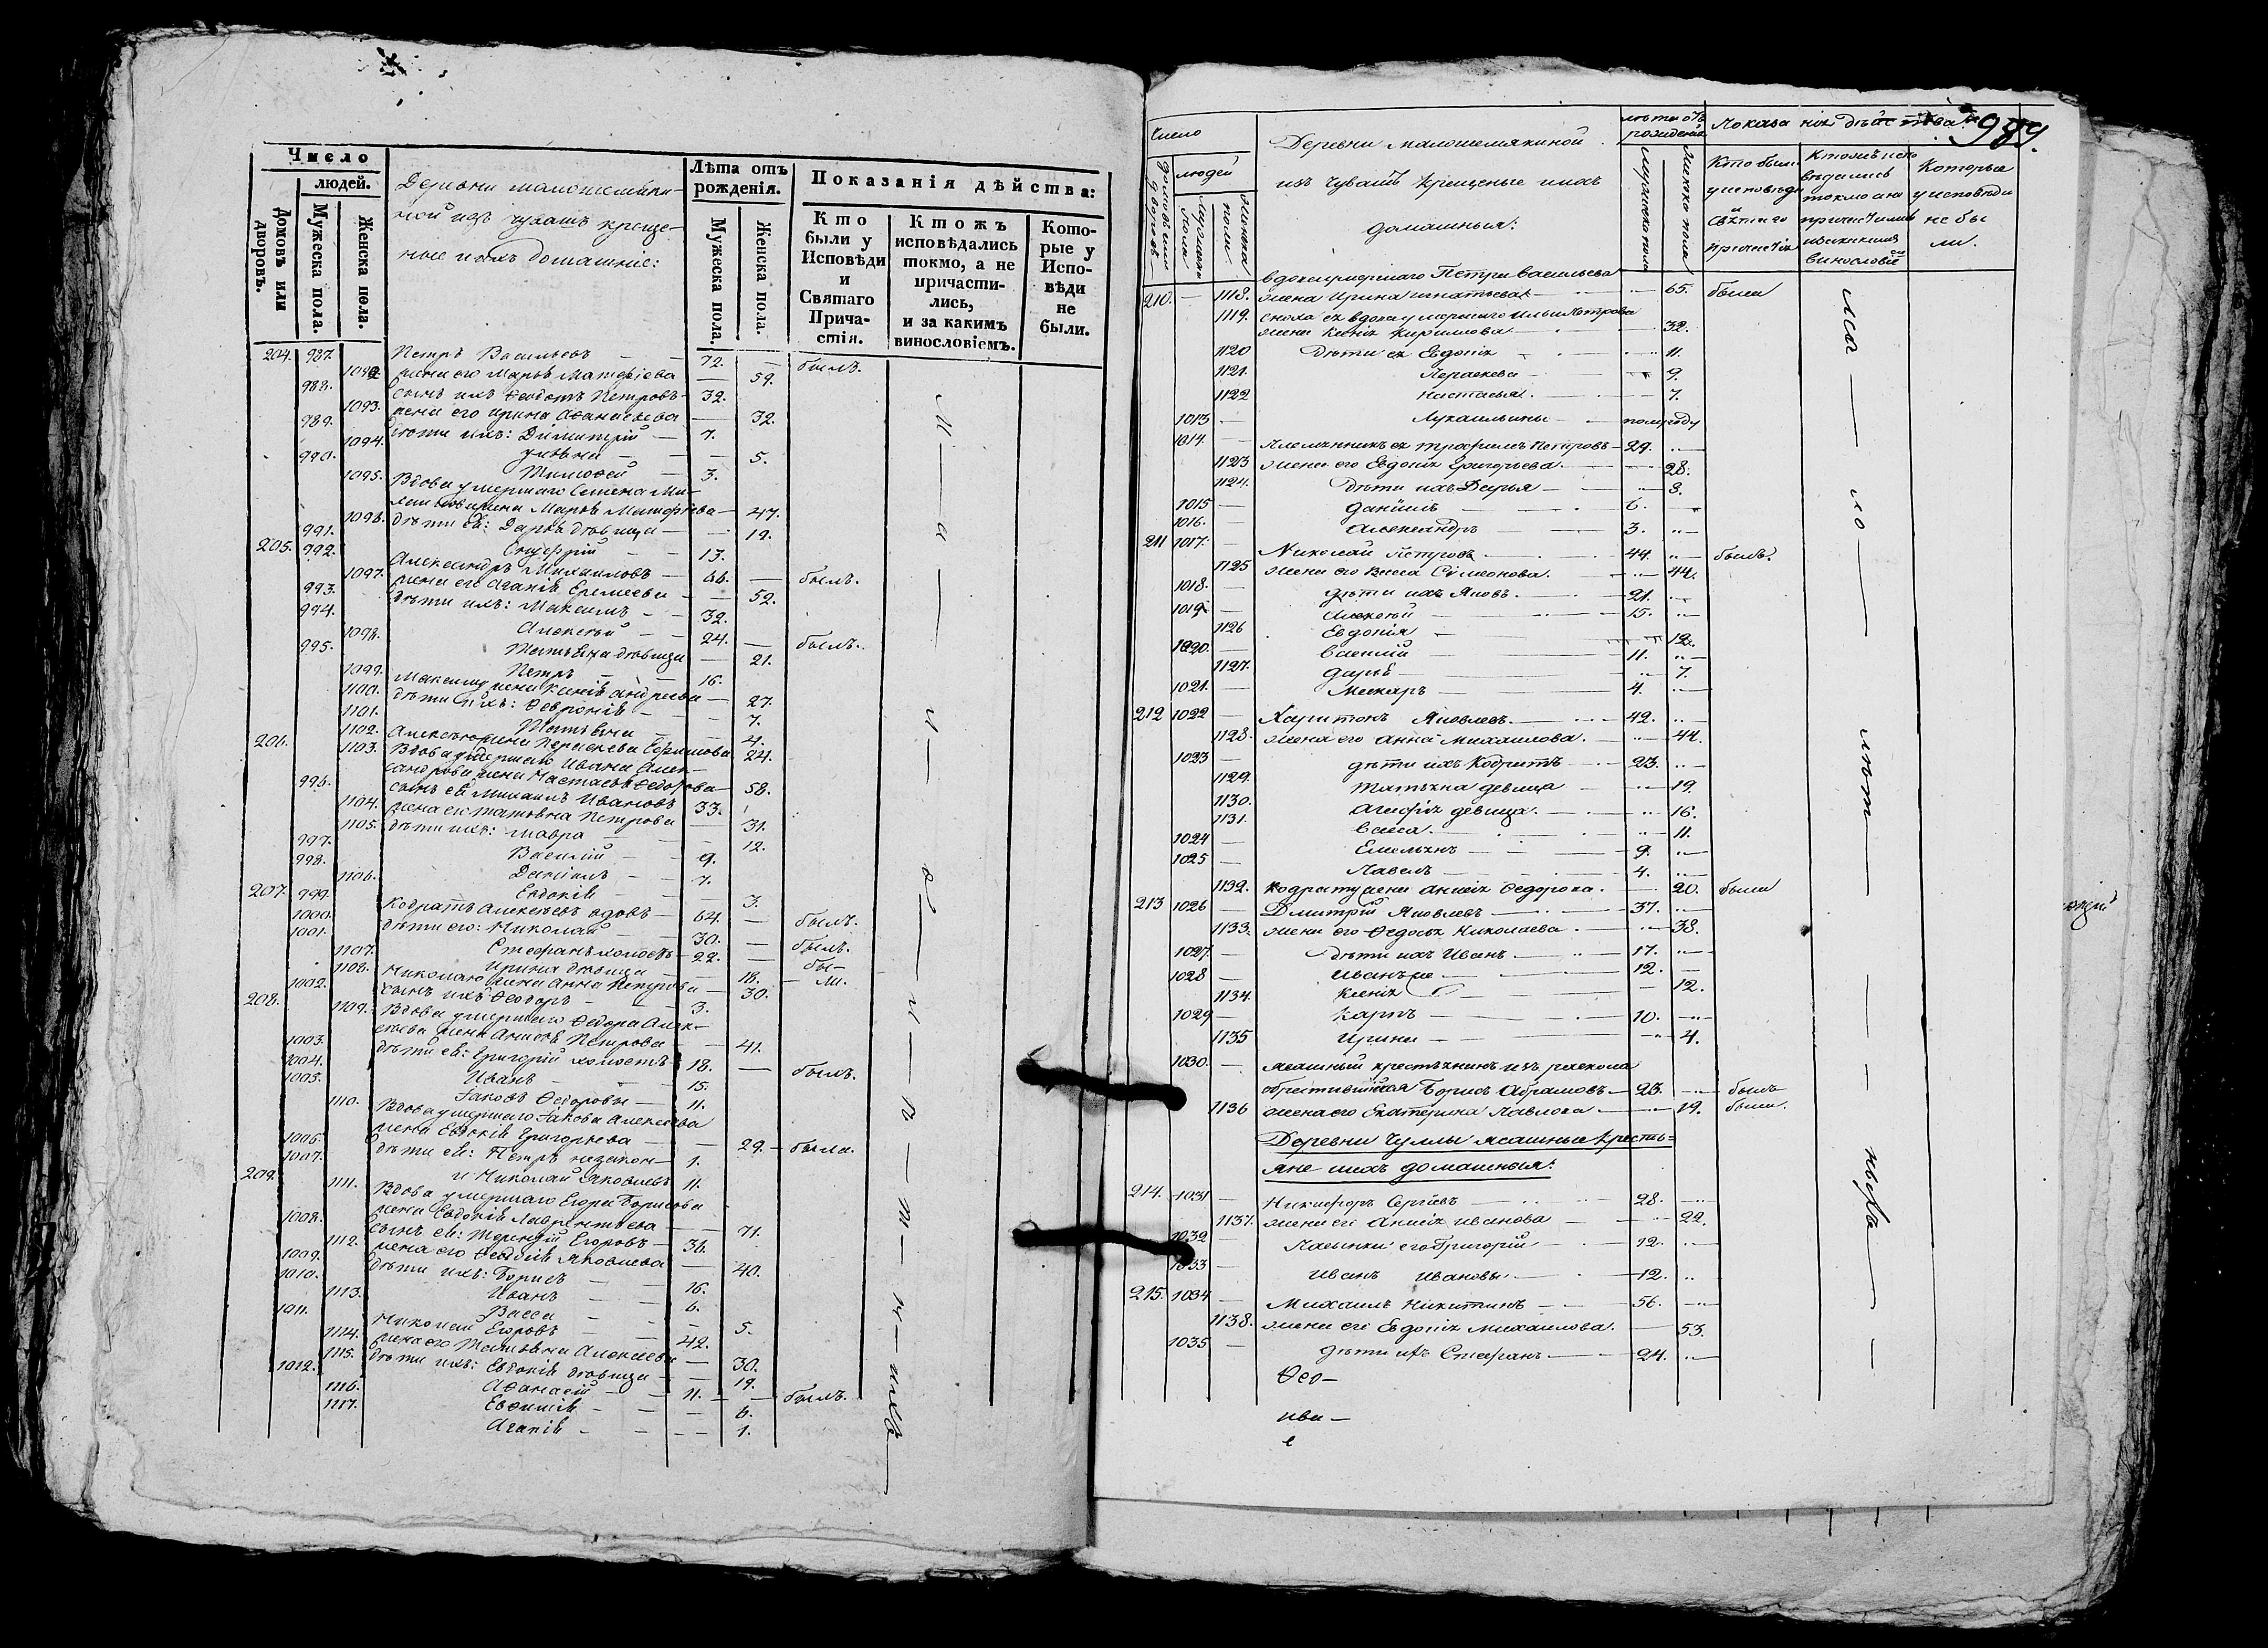 Число
людей.
Домовъ или дворовъ.
Мужеска пола.
Женска пола.
Деревни малошемяки-
ной изъ чувашъ креще-
ные и ихъ домашніе:
Лѣта отъ рожденія.
Мужеска пола.
Женска пола.
Показанія дѣйства:
Кто были у Исповѣди и Святаго Прича-стія.
Ктожъ исповѣдались токмо, а не причасти-лись, и за какимъ винословіемъ.
Кото-рые у Испо-вѣди не были.
204. 987. Петръ Васильевъ — 72. — былъ.
1092 жена его Марья Матфіева — 59.
988. сынъ ихъ Ѳеодотъ Петровъ 32.
1093. жена его Ирина Аѳанасьева — 32.
989. дѣти ихъ: Димитрій — 7.
1094. Ульяна — 5.
990. Тимоѳей — 3.
1095. Вдова умершаго Семена Ми-
жена Марья Матфіева — 47.
1096. дѣти ея: Дарья дѣвица — 19.
991. Онуфрій — 13.
205. 992. Александръ Михаиловъ — 66. — былъ.
1097. жена его Агапія Еремеева — 52.
993. дѣти ихъ: Максимъ — 32.
994. Алексѣй — 24. — былъ.
1098. Татьяна дѣвица — 21.
995. Петръ — 16.
1099. Максиму жена Ксенія Андреева — 27.
1100. дѣти ихъ: Ѳевронія — 7.
1101. Татьяна — 4.
1102. Алексѣю жена Параскева Ефимова 24.
206. 1103. Вдова умершаго Ивана Алек-
сандрова жена Настасья Ѳедорова — 58.
996. сынъ ея Михаилъ Ивановъ 33.
1104. жена его Татьяна Петрова — 31.
1105. дѣти ихъ: Мавра — 12.
997. Василій — 9.
998. Даніилъ — 7.
1106. Евдокія — 3.
207. 999. Кодратъ Алексѣевъ вдовъ — 64. — былъ.
1000. дѣти его: Николай — 30. — былъ.
1001. Стефанъ холостъ — 22. — бы-
1107. Ирина дѣвица — 18. — ли.
1108. Николаю жена Анна Петрова — 30.
1002. сынъ ихъ Ѳеодоръ — 3.
208. 1109. Вдова умершаго Ѳедора Алек-
сѣева жена Анисья Петрова — 41.
1003. дѣти ея: Григорій холостъ 18. — былъ.
1004. Иванъ — 15.
1005. Іаковъ Ѳедоровы — 11.
1110. Вдова умершаго Іакова Алексѣева
жена Евдокія Григорьева — 29. — была.
1006. дѣти ея: Петръ незакон — 1.
1007. и Николай Яковлевъ 11.
209. 1111. Вдова умершаго Егора Борисова
жена Евдокія Лаврентьева — 71.
1008. сынъ ея: Терентій Егоровъ — 36.
1112. жена его Ѳеодосія Яковлева — 40.
1009. дѣти ихъ: Борисъ — 16.
1010. Иванъ — 6.
1113. Васса — 5.
1011. Николай Егоровъ — 42.
1114. жена его Татьяна Алексѣева — 30.
1115. дѣти ихъ: Евдокія дѣвица — 19.
1012. Аѳанасій — 11. — былъ.
1116. Евфимія — 6.
1117. Агапія — 1.
989.
Число
людей
Деревни Малошемякиной
изъ Чувашъ крещеные и ихъ
домашныя:
лѣта отъ рожденія
мужеска пола
женска пола
Показанія дѣйства:
Кто были у исповѣди и Святаго причастія
Ктожъ испо вѣдались токмо а не причастились и за какимъ винословіе
Которые у исповѣди не бы ли.
вдова умершаго Петра Васильева
210. — 1118. жена Ирина Игнатьева — 65. были
1119. сноха ея вдова умершаго Ильи Петрова
жена Ксенія Кирилова — 32.
1120 дѣти ея Евдокія — 11.
1121. Параскева — 9.
1122 Настасья — 7.
1013 — полугоду
1014. — племянникъ ея Трофимъ Петровъ — 29.
1123 жена его Евдокія Григорьева — 28.
1124. дѣти ихъ Дарья — 8.
1015 — Даніилъ — 6.
1016. — Александръ — 3.
211 1017. — Николай Петровъ — 44. былъ.
1125 жена его Васса Сімеонова. — 44.
1018. дѣти ихъ Яковъ — 21.
1019 — Алексѣй — 15.
1126 Евдокія — 12.
1020. — Василій — 11.
1127. Дарья — 7.
1021. — Макаръ — 4.
212 1022 — Харитонъ Яковлевъ — 42.
1128. жена его Анна Михаилова. — 44.
1023 — дѣти ихъ Кодратъ — 23.
1129. Татьяна девица — 19.
1130. Агафія девица. — 16.
1131. Васса — 11.
1024 — Емельянъ — 9.
1025 — Павелъ — 4.
1132. Кодрату жена Анисія Ѳедорова. — 20. были
213 1026 — Дмитрій Яковлевъ — 37.
1133. жена его Ѳедосья Николаева — 38.
1027. — дѣти ихъ Иванъ — 17.
1028 — Иванъ же — 12.
1134. Ксенія — 12.
1029 — Карпъ — 10.
1135 Ирина — 4.
1030. — ясашный крестьянинъ изъ раскола
обратившійся Борисъ Абрамовъ — 23. — былъ
1136 жена его Екатерина Павлова — 19. были.
Деревни Чуллы ясашные кресть=
яне и ихъ домашныя:
214. 1031 — Никифоръ Сергѣевъ — 28.
1137. жена его Анисія Иванова — 22.
1032 — Пасынки его Григорій — 12.
1033 — Иванъ Ивановы — 12.
215. 1034 — Михаилъ Никитинъ — 56.
1138. жена его Евдокія Михаилова. — 53.
1035 — дѣти ихъ Стефанъ — 24.
Ѳео-
ива-